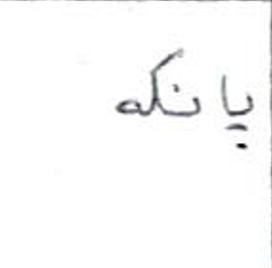 پانکه